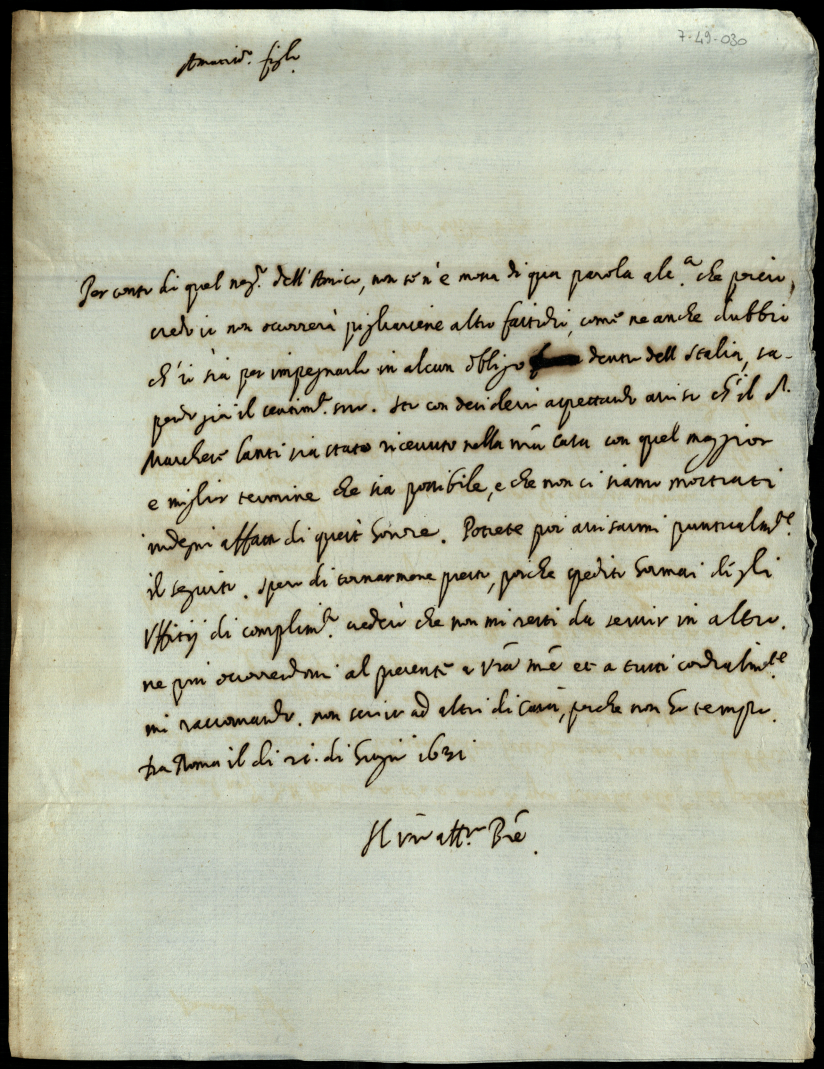 7-49-030
Amatiss.º figlio
Per conto di quel neg.º dell'Amico, non se n'è mossa di qua parola alc.ª che perciò,
credo io non occorrerà pigliarsene altro fastidio, come ne anche dubbio
ch'io sia per impegnarlo in alcun obligo dentro dell'Italia, sa-
pendo già il sentim.º suo. Sto con desiderio aspettando aviso ch'il S.
Marchese Santi sia stato ricevuto nella mia Casa con quel maggior
e miglior termine che sia possibile, e che non ci siamo mostrati
indegni affatto di quest'honore. Potrete poi avisarmi puntualm.te
il seguito. Spero di tornarmene presto, perche spedito hormai dígli
Uffitij di complim.º crederò che non mi resti da servir in altro.
ne piu occorrendomi al presente a Vra Mre et a tutti cordialm.te
mi raccomando. non scrivo ad altri di Casa, perche non ho tempo.
Da Roma il di 21. di Giugno 1631
Il vro aff.mo Pre.